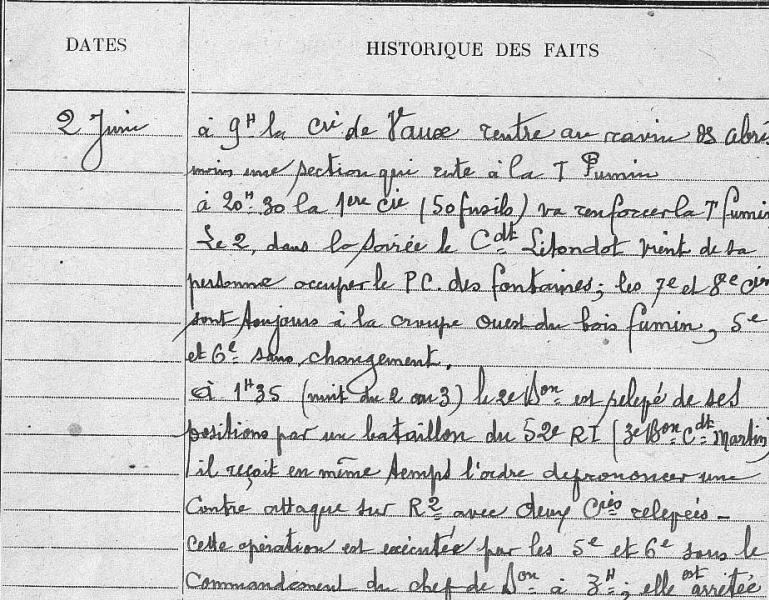 DATES
HISTORIQUE DES FAITS
2 Juin
à 9H la Cie de Vaux rentre au ravin des abris
moins une section qui reste à la T Fumin
à 20H30 la 1ere Cie (50 fusils) va renforcer la T fumin
Le 2, dans la soirée le Cdt vient de sa
personne occuper le P.C. des fontaines; les 7e et 8e Cies
sont toujours à la croupe Ouest du bois fumin, 5e
et 6e sans changement.
à 1H35 (nuit du 2 au 3) le 2e Bon est relevé de ses
positions par un bataillon du 52e RI (3e Bon Cdt Martin)
il reçoit en même temps l'ordre de prononcer une
Contre attaque sur R2 avec deux Cies relevées -
cette opération est exécutée par les 5e et 6e sous le
Commandement du chef de Bon à 3H; elle est arrêtée